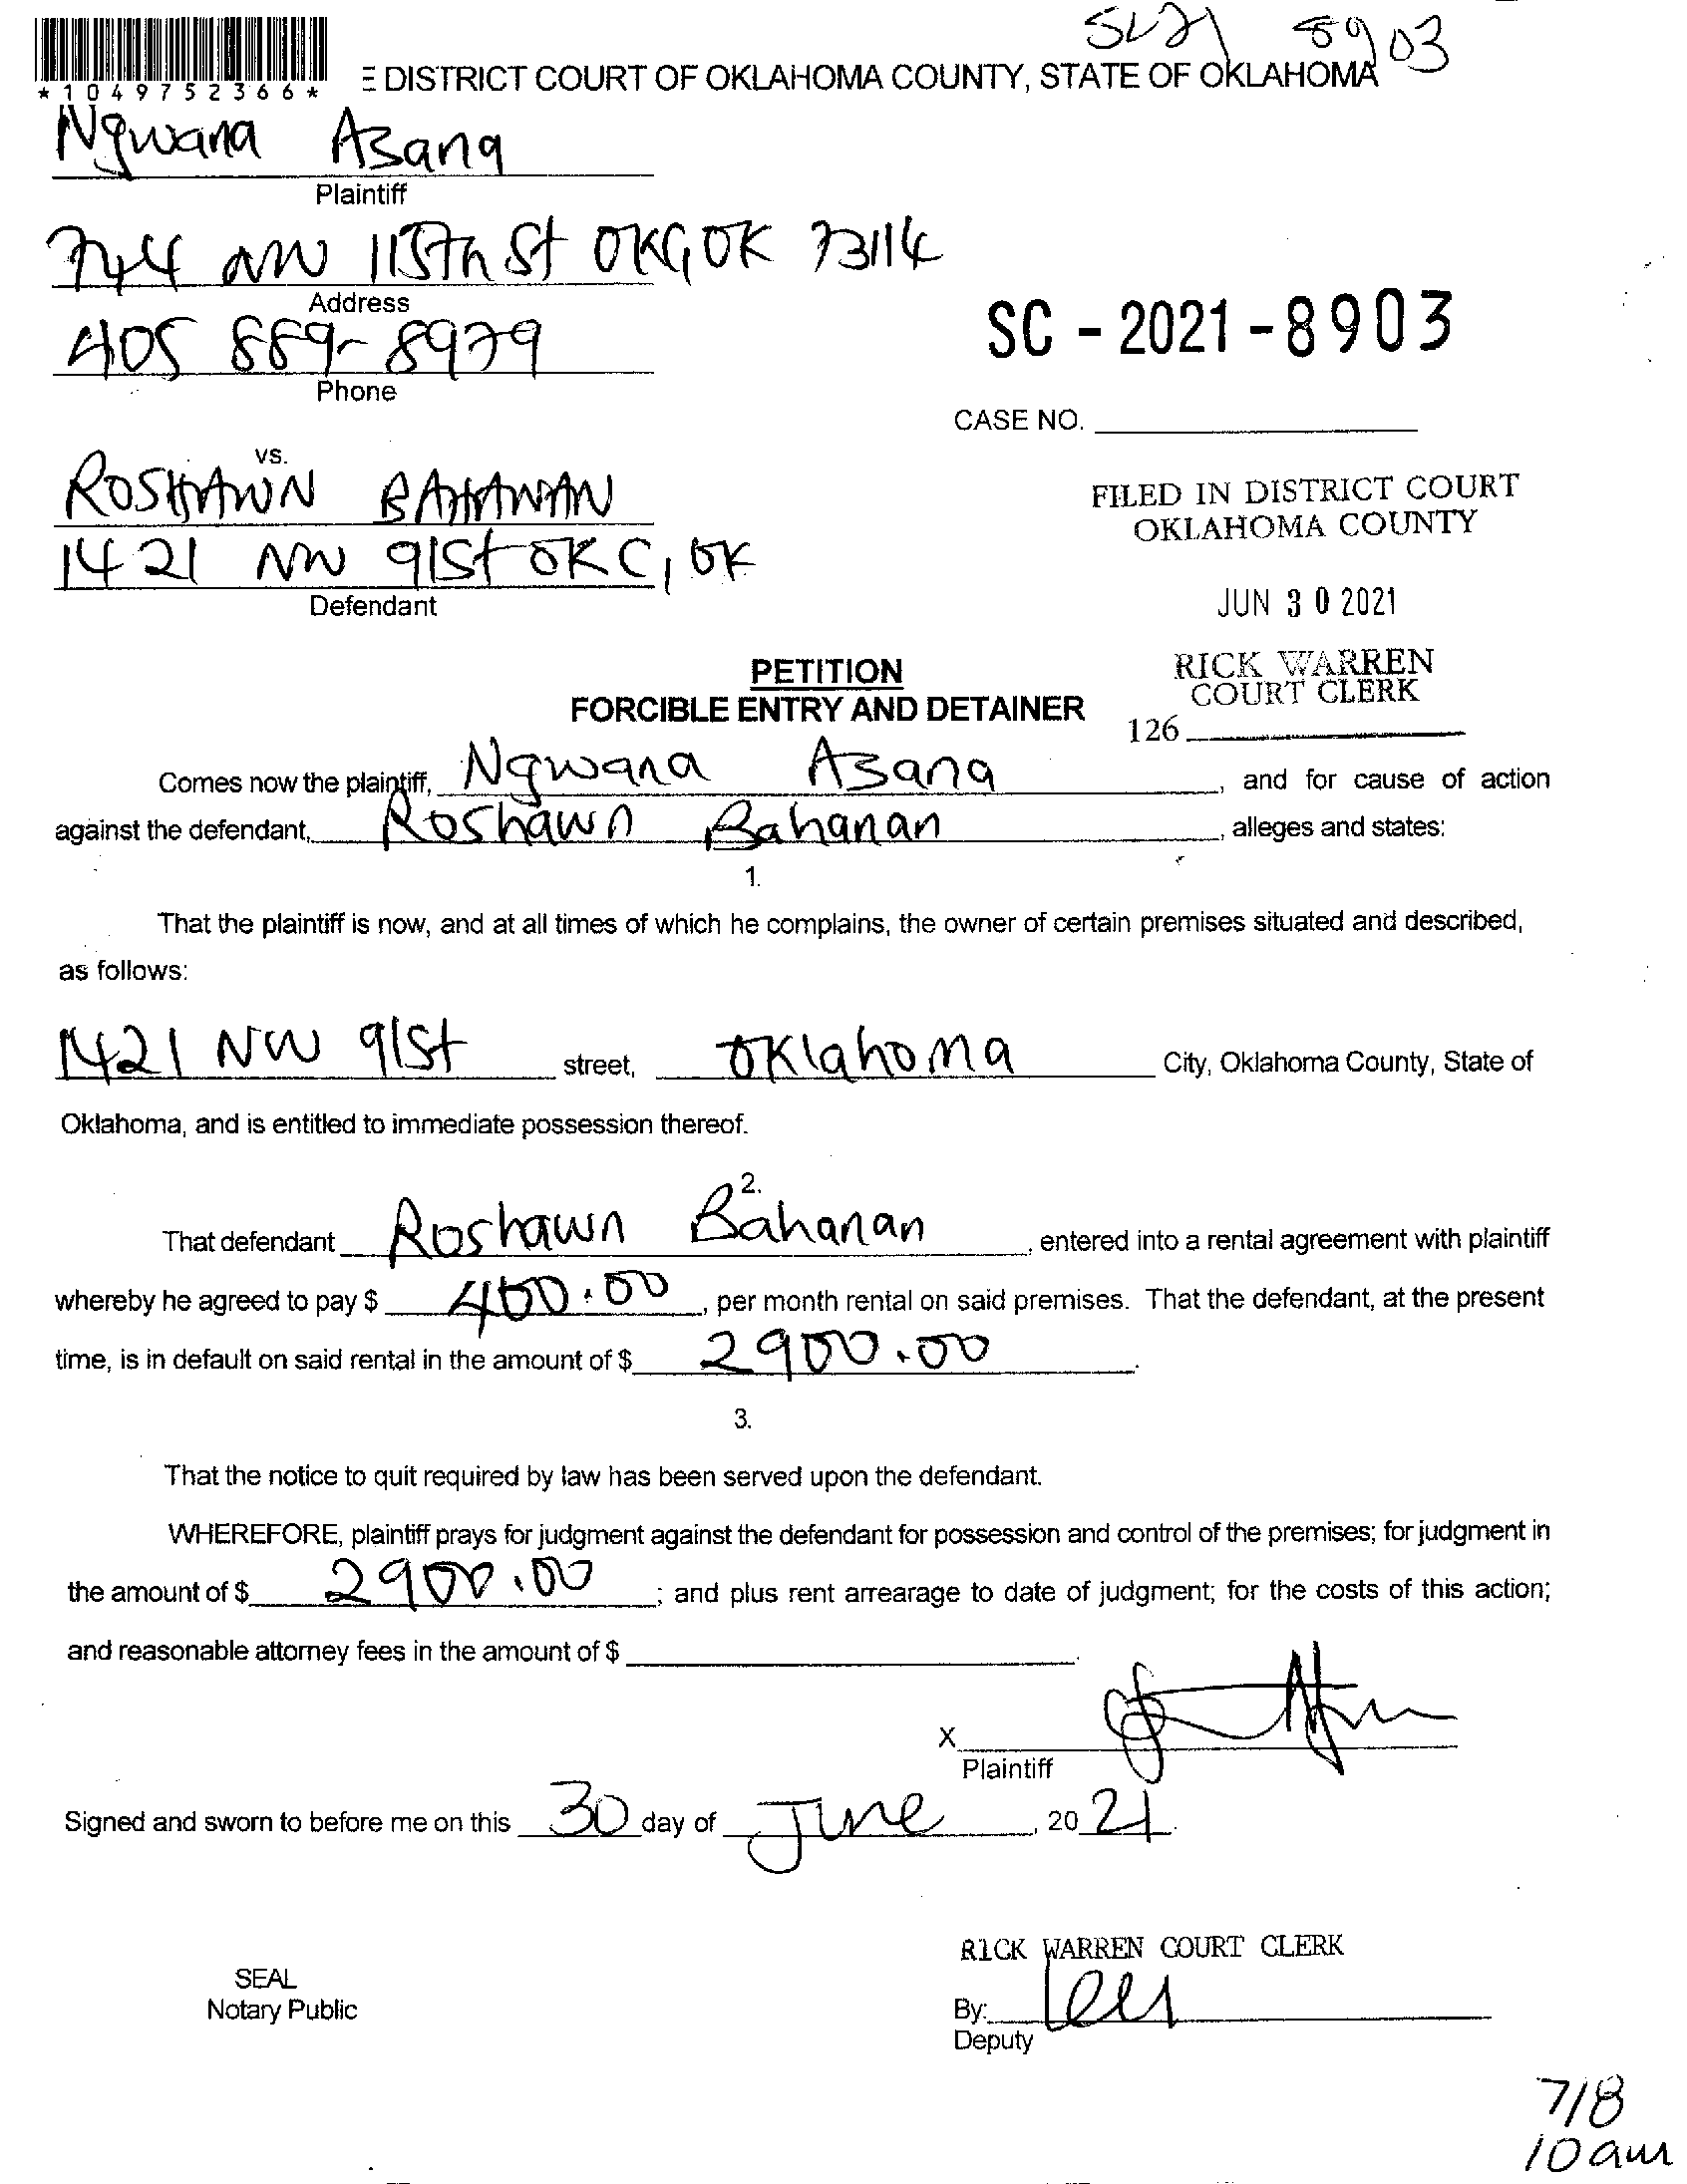 SC21 8903
*1049752366*
E DISTRICT COURT OF OKLAHOMA COUNTY, STATE OF OKLAHOMA
Ngwana Azang
Plaintiff
744 NW 115th St OKC, OK 73114
Address
405 889-8979
Phone
SC - 2021 - 8903
CASE NO.
vs.
ROSHAWN BAHANAN
1421 NW 91St OKC, OK
Defendant
FILED IN DISTRICT COURT
OKLAHOMA COUNTY
JUN 30 2021
RICK WARREN
COURT CLERK
126
PETITION
FORCIBLE ENTRY AND DETAINER
Comes now the plaintiff, Ngwana Azang, and for cause of action
against the defendant, Roshawn Bahanan, alleges and states:
1.
That the plaintiff is now, and at all times of which he complains, the owner of certain premises situated and described,
as follows:
1421 NW 91St street, Oklahoma City, Oklahoma County, State of
Oklahoma, and is entitled to immediate possession thereof.
2.
That defendant Roshawn Bahanan, entered into a rental agreement with plaintiff
whereby he agreed to pay $ 400.00, per month rental on said premises. That the defendant, at the present
time, is in default on said rental in the amount of $ 2900.00.
3.
That the notice to quit required by law has been served upon the defendant.
WHEREFORE, plaintiff prays for judgment against the defendant for possession and control of the premises; for judgment in
the amount of $ 2900.00; and plus rent arrearage to date of judgment; for the costs of this action;
and reasonable attorney fees in the amount of $ .
X
Plaintiff
Signed and sworn to before me on this 30 day of June, 2021.
RICK WARREN COURT CLERK
SEAL
Notary Public
By:
Deputy
7/8
10 am